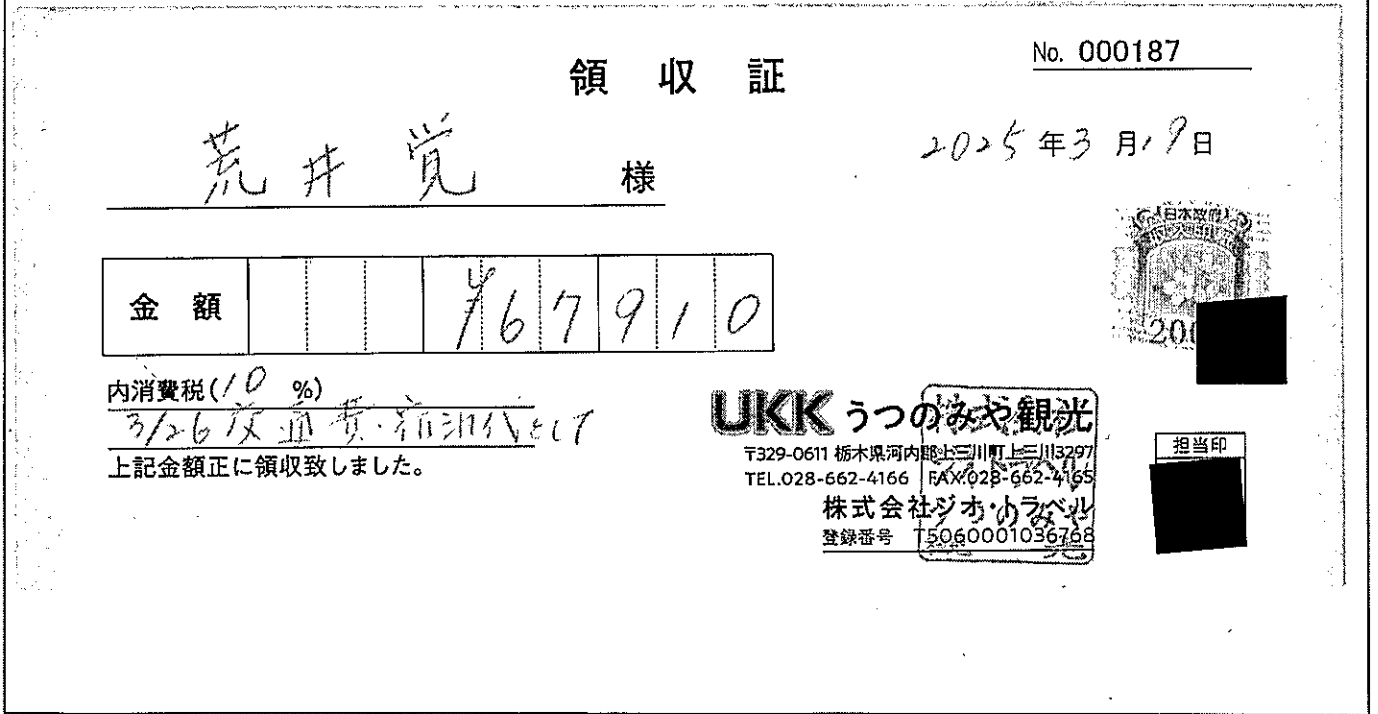 No. 000187
領収証
2025年3月19日
荒井 覚 様
日本政府
金額 ¥67910
200
内消費税(10 %)
3/26 交通費・宿泊代として
上記金額正に領収致しました。
UKK うつのみや観光
〒329-0611 栃木県河内郡上三川町上三川3297
TEL.028-662-4166 FAX.028-662-4165
株式会社ジオ・トラベル
登録番号 T5060001036768
担当印